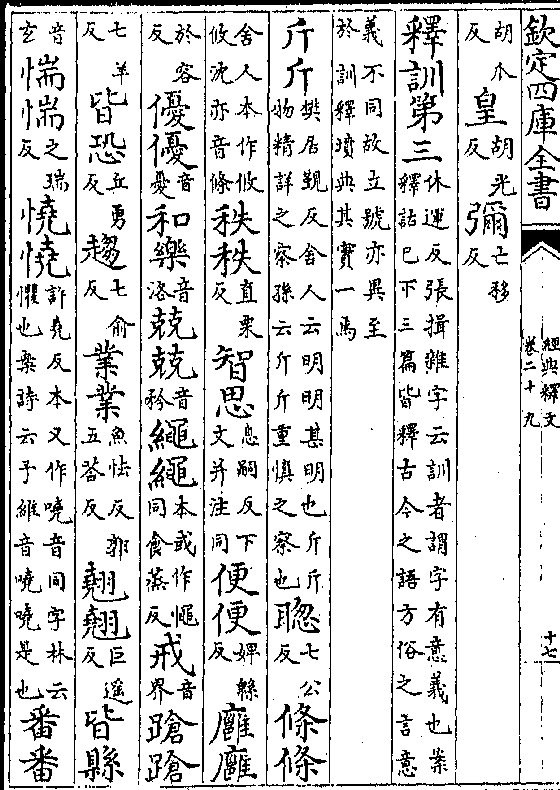 欽定四庫全書
經典釋文
卷二十九
十七
胡爪反皇胡光反彌亡移反
釋訓第三休運反張揖雜字云訓者謂字有意義也案釋詁已下三篇皆釋古今之語方俗之言意
義不同故立號亦異至於訓釋墳典其實一焉
斤斤樊居覲反舍人云明明甚明也斤斤物精詳之察孫云斤斤重慎之察也聦七公反條條
舍人本作攸攸沈亦音條秩秩直栗反智思息嗣反下文并注同便便婢緜反廱廱
於容反優優音憂和樂音洛兢兢音矜繩繩本或作憴同食蒸反戒音界蹌蹌
七羊反皆恐丘勇反趨七俞反業業魚怯反郭五荅反翹翹巨遥反皆縣
音玄惴惴之瑞反憢憢許堯反本又作嘵音同字林云懼也案詩云予維音嘵嘵是也番番